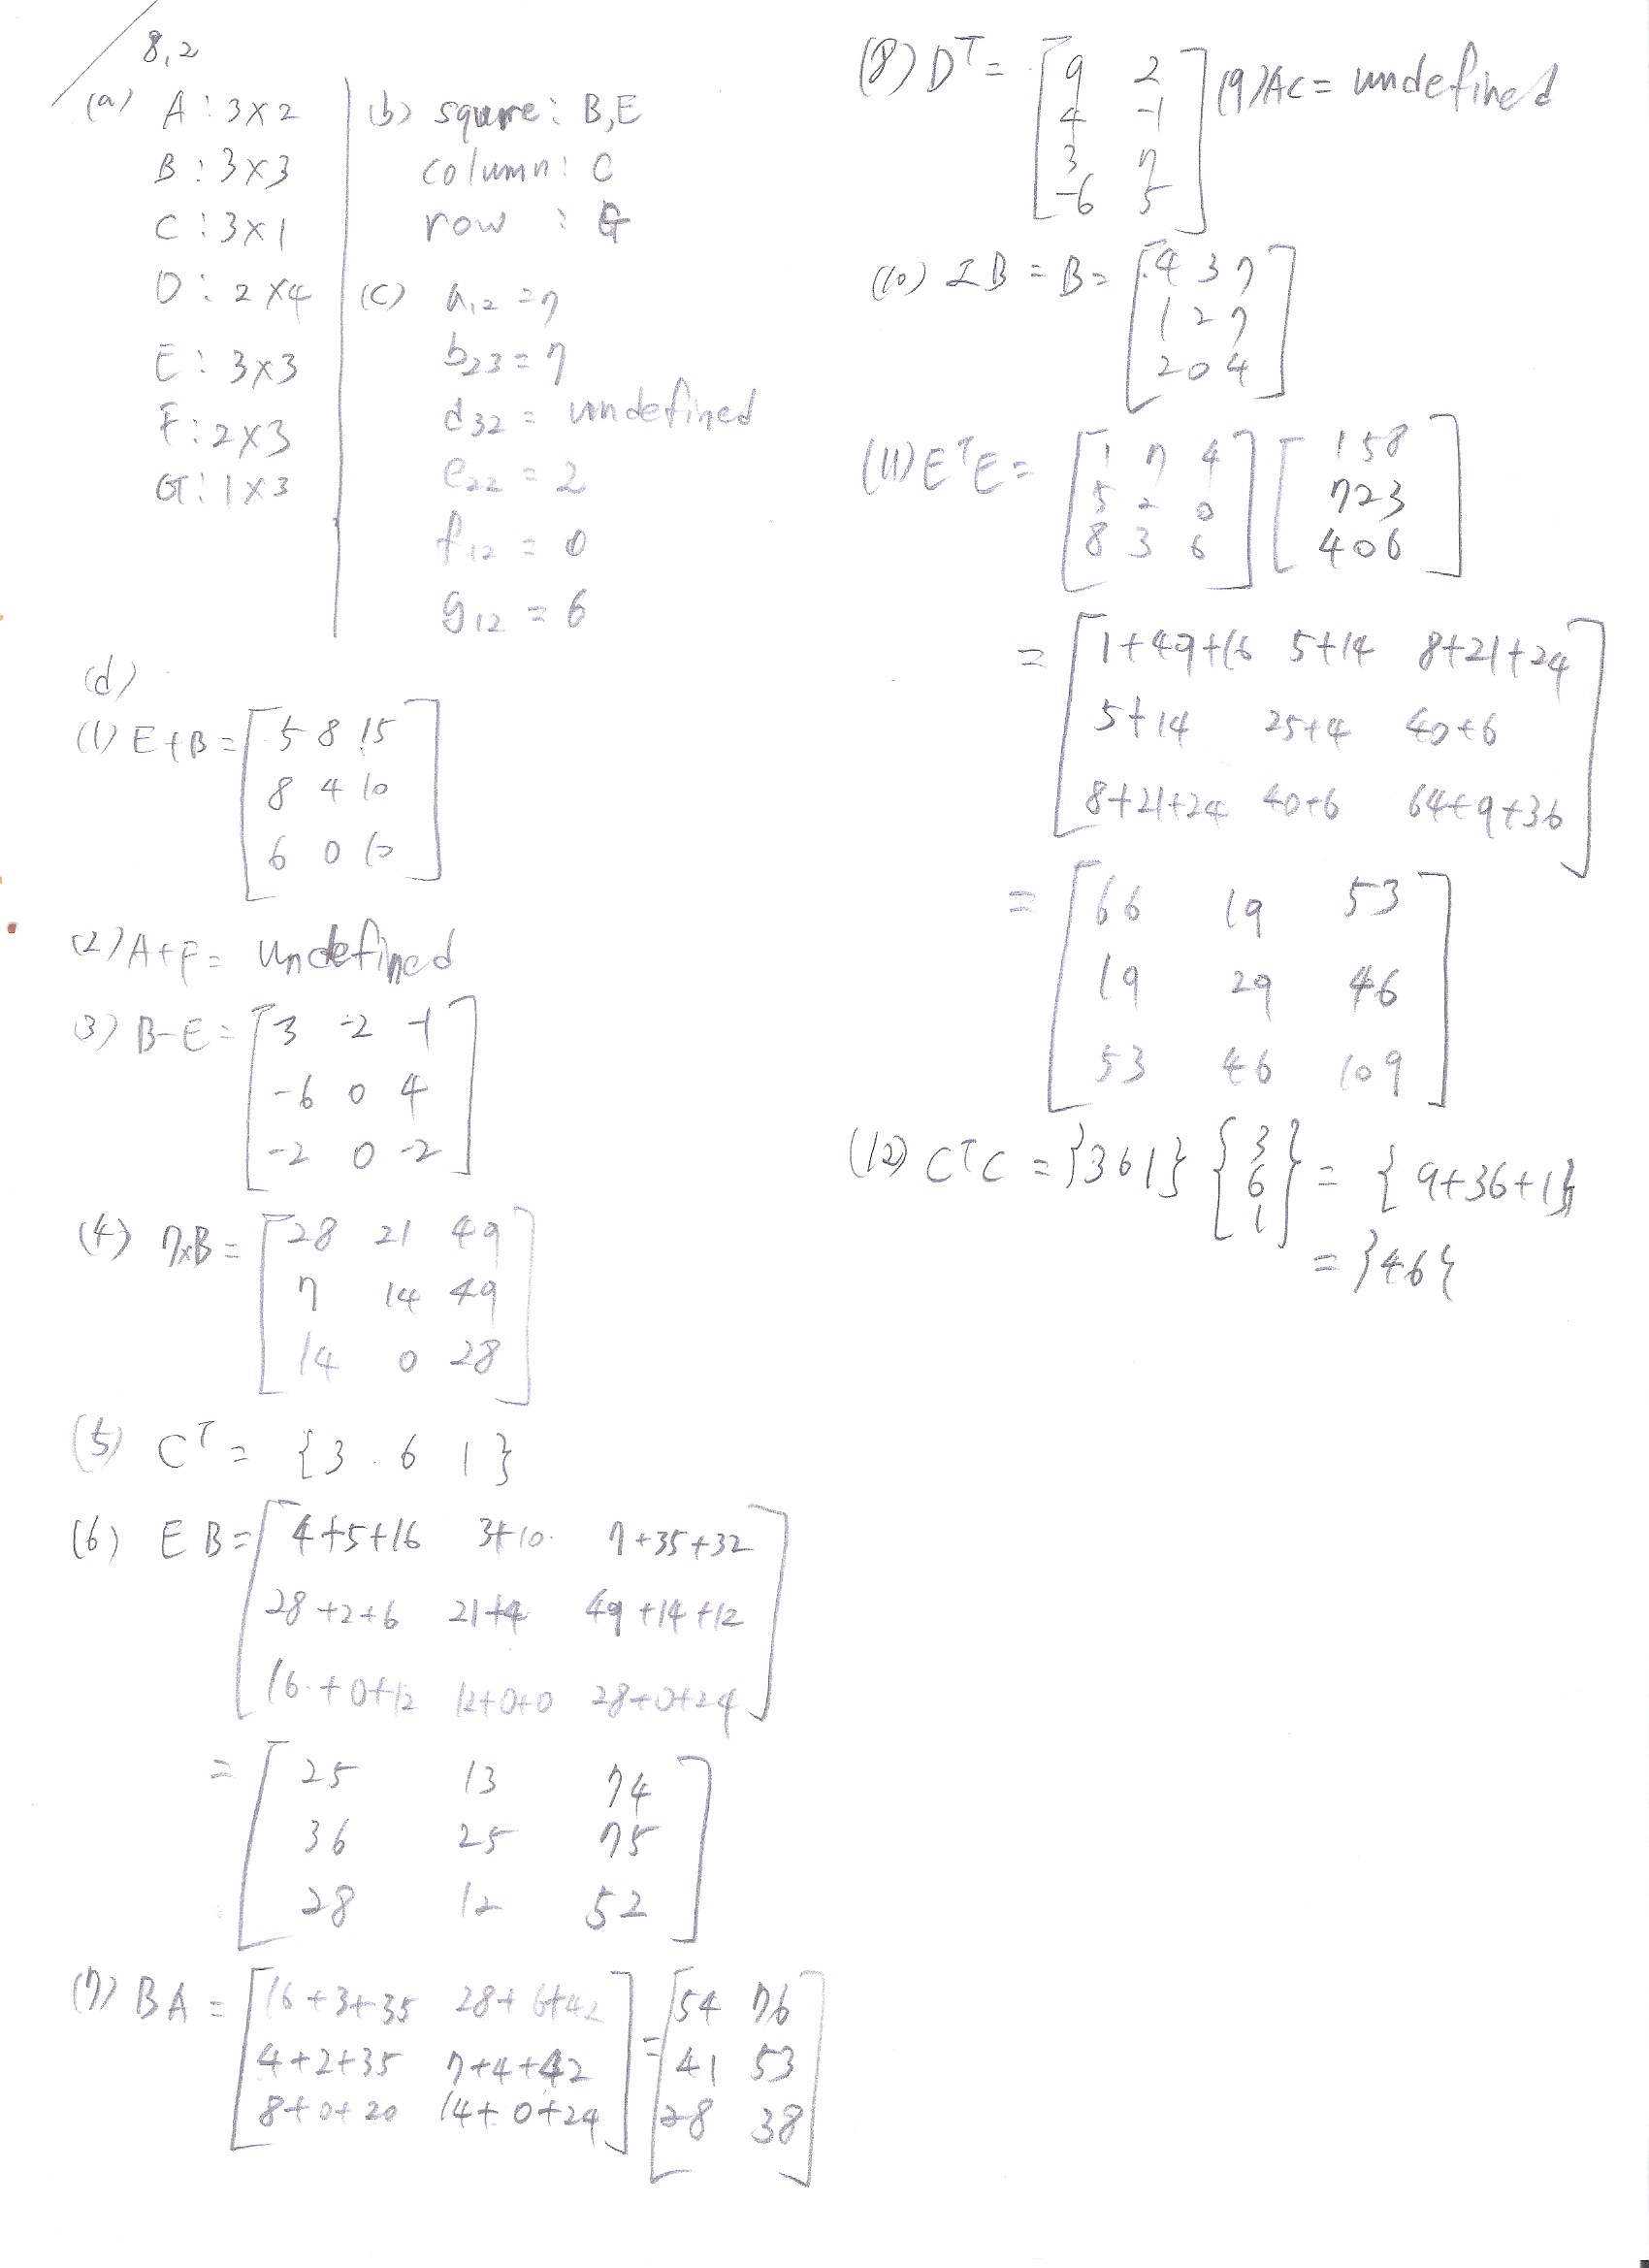 8,2
(a) A : 3×2
B : 3×3
C : 3×1
D : 2×4
E : 3×3
F : 2×3
G : 1×3
(b) square : B,E
column : C
row : G
(c) a12 = 7
b23 = 7
d32 = undefined
e22 = 2
f12 = 0
g12 = 6
(d)
(1) E+B = [5 8 15
8 4 10
6 0 10]
(2) A+F = undefined
(3) B-E = [3 -2 -1
-6 0 4
-2 0 -2]
(4) 7×B = [28 21 49
7 14 49
14 0 28]
(5) C^T = {3 6 1}
(6) EB = [4+5+16 3+10 7+35+32
28+2+6 21+4 49+14+12
16+0+12 12+0+0 28+0+24]
= [25 13 74
36 25 75
28 12 52]
(7) BA = [16+3+35 28+6+42
4+2+35 7+4+42
8+0+20 14+0+24] = [54 76
41 53
28 38]
(8) D^T = [9 2
4 -1
3 7
-6 5]
(9) AC = undefined
(10) IB = B = [4 3 7
1 2 7
2 0 4]
(11) E^T E = [1 7 4
5 2 0
8 3 6] [1 5 8
7 2 3
4 0 6]
= [1+49+16 5+14 8+21+24
5+14 25+4 40+6
8+21+24 40+6 64+9+36]
= [66 19 53
19 29 46
53 46 109]
(12) C^T C = {3 6 1} {3
6
1} = {9+36+1}
= {46}